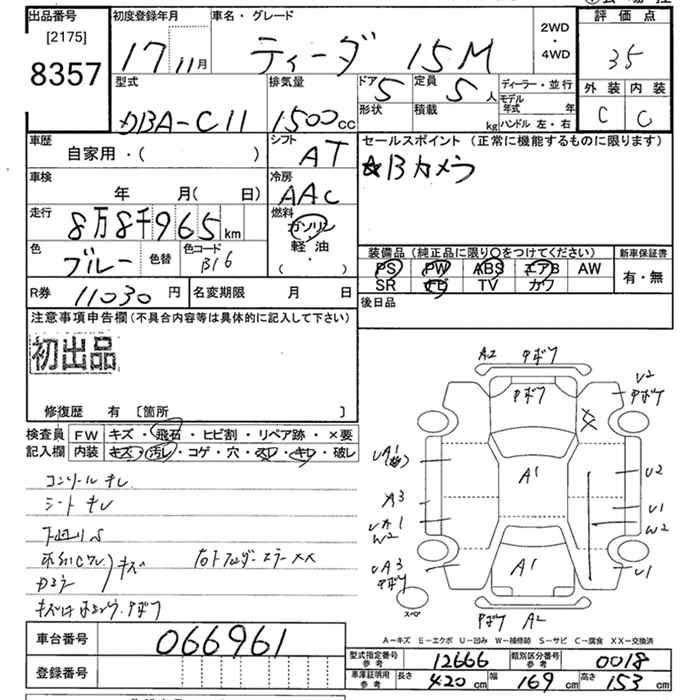 出品番号
[2175]
8357
初度登録年月
17 11月
車名・グレード
ティーダ 15M
2WD
・
4WD
評価点
35
外装 内装
C C
型式
DBA-C11
排気量
1500cc
ドア 5
形状
定員 5人
積載 kg
ディーラー・並行
モデル年式 年
ハンドル 左・右
車歴
自家用・( )
シフト
AT
車検
年 月( 日)
冷房
AAC
走行
8万8千965km
燃料
ガソリン
軽油
・
( )
色
ブルー
色替
色コード
B16
セールスポイント(正常に機能するものに限ります)
☆Bカメラ
装備品(純正品に限り○をつけてください)
PS PW ABS エアB AW
SR TV カワ
新車保証書
有・無
R券 11030円
名変期限 月 日
後日品
注意事項申告欄(不具合内容等は具体的に記入して下さい)
初出品
修復歴 有 [箇所 ]
検査員
記入欄
FW キズ・飛石・ヒビ割・リペア跡・×要
内装 キズ・汚レ・コゲ・穴・スレ・キレ・破レ
コンソールキレ
シートキレ
キズ
右トフェンダーエラーXX
A2 中ボワ
中ボワ
U2
中ボワ
A1
UA1
A3
UA1
W2
UA3
中ボワ
U2
U1
W2
U1
A1
スペア
中ボワ A2
A-キズ E-エクボ U-凹み W-補修跡 S-サビ C-腐食 XX-交換済
車台番号
066961
登録番号
型式指定番号
参考
12666
類別区分番号
参考
0018
車庫証明用
参考
長さ 420cm
幅 169cm
高さ 153cm